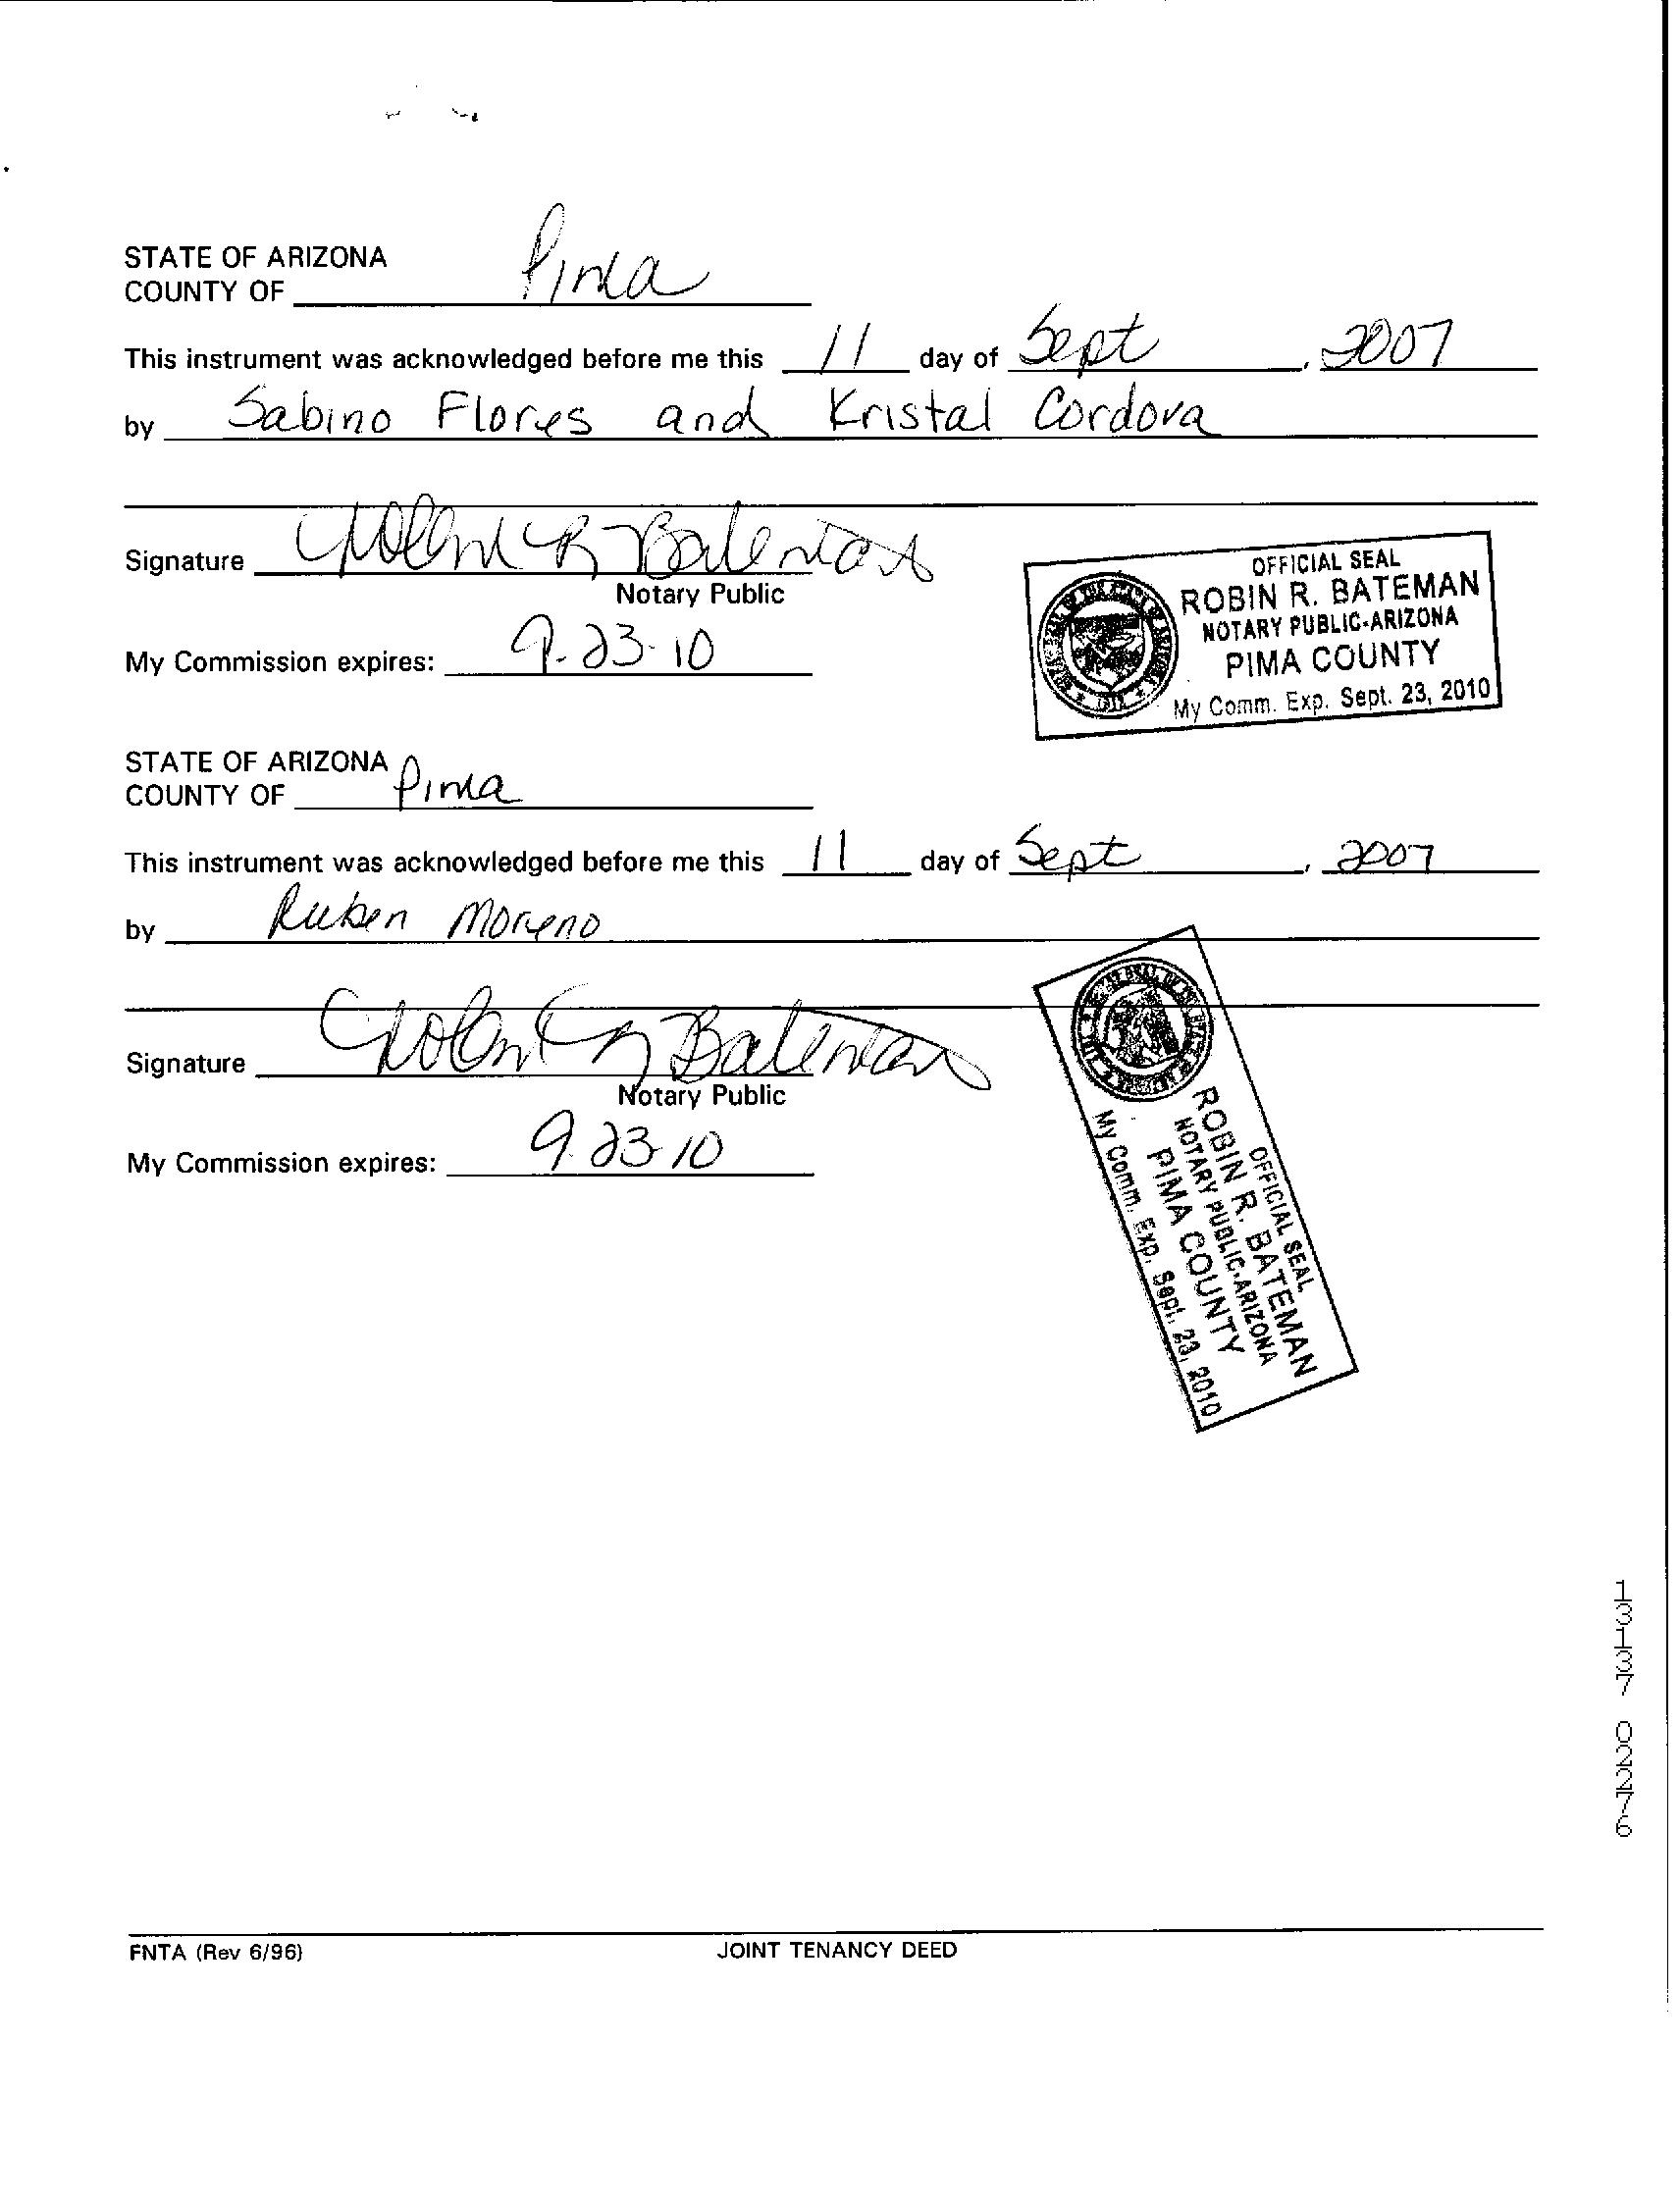 STATE OF ARIZONA
COUNTY OF Pima
This instrument was acknowledged before me this 11 day of Sept, 2007
by Sabino Flores and Kristal Cordova
Signature Robin R Bateman
Notary Public
My Commission expires: 9-23-10
OFFICIAL SEAL
ROBIN R. BATEMAN
NOTARY PUBLIC-ARIZONA
PIMA COUNTY
My Comm. Exp. Sept. 23, 2010
STATE OF ARIZONA
COUNTY OF Pima
This instrument was acknowledged before me this 11 day of Sept, 2007
by Ruben Moreno
Signature Robin R Bateman
Notary Public
My Commission expires: 9-23-10
OFFICIAL SEAL
ROBIN R. BATEMAN
NOTARY PUBLIC-ARIZONA
PIMA COUNTY
My Comm. Exp. Sept. 23, 2010
13137 02276
FNTA (Rev 6/96) JOINT TENANCY DEED